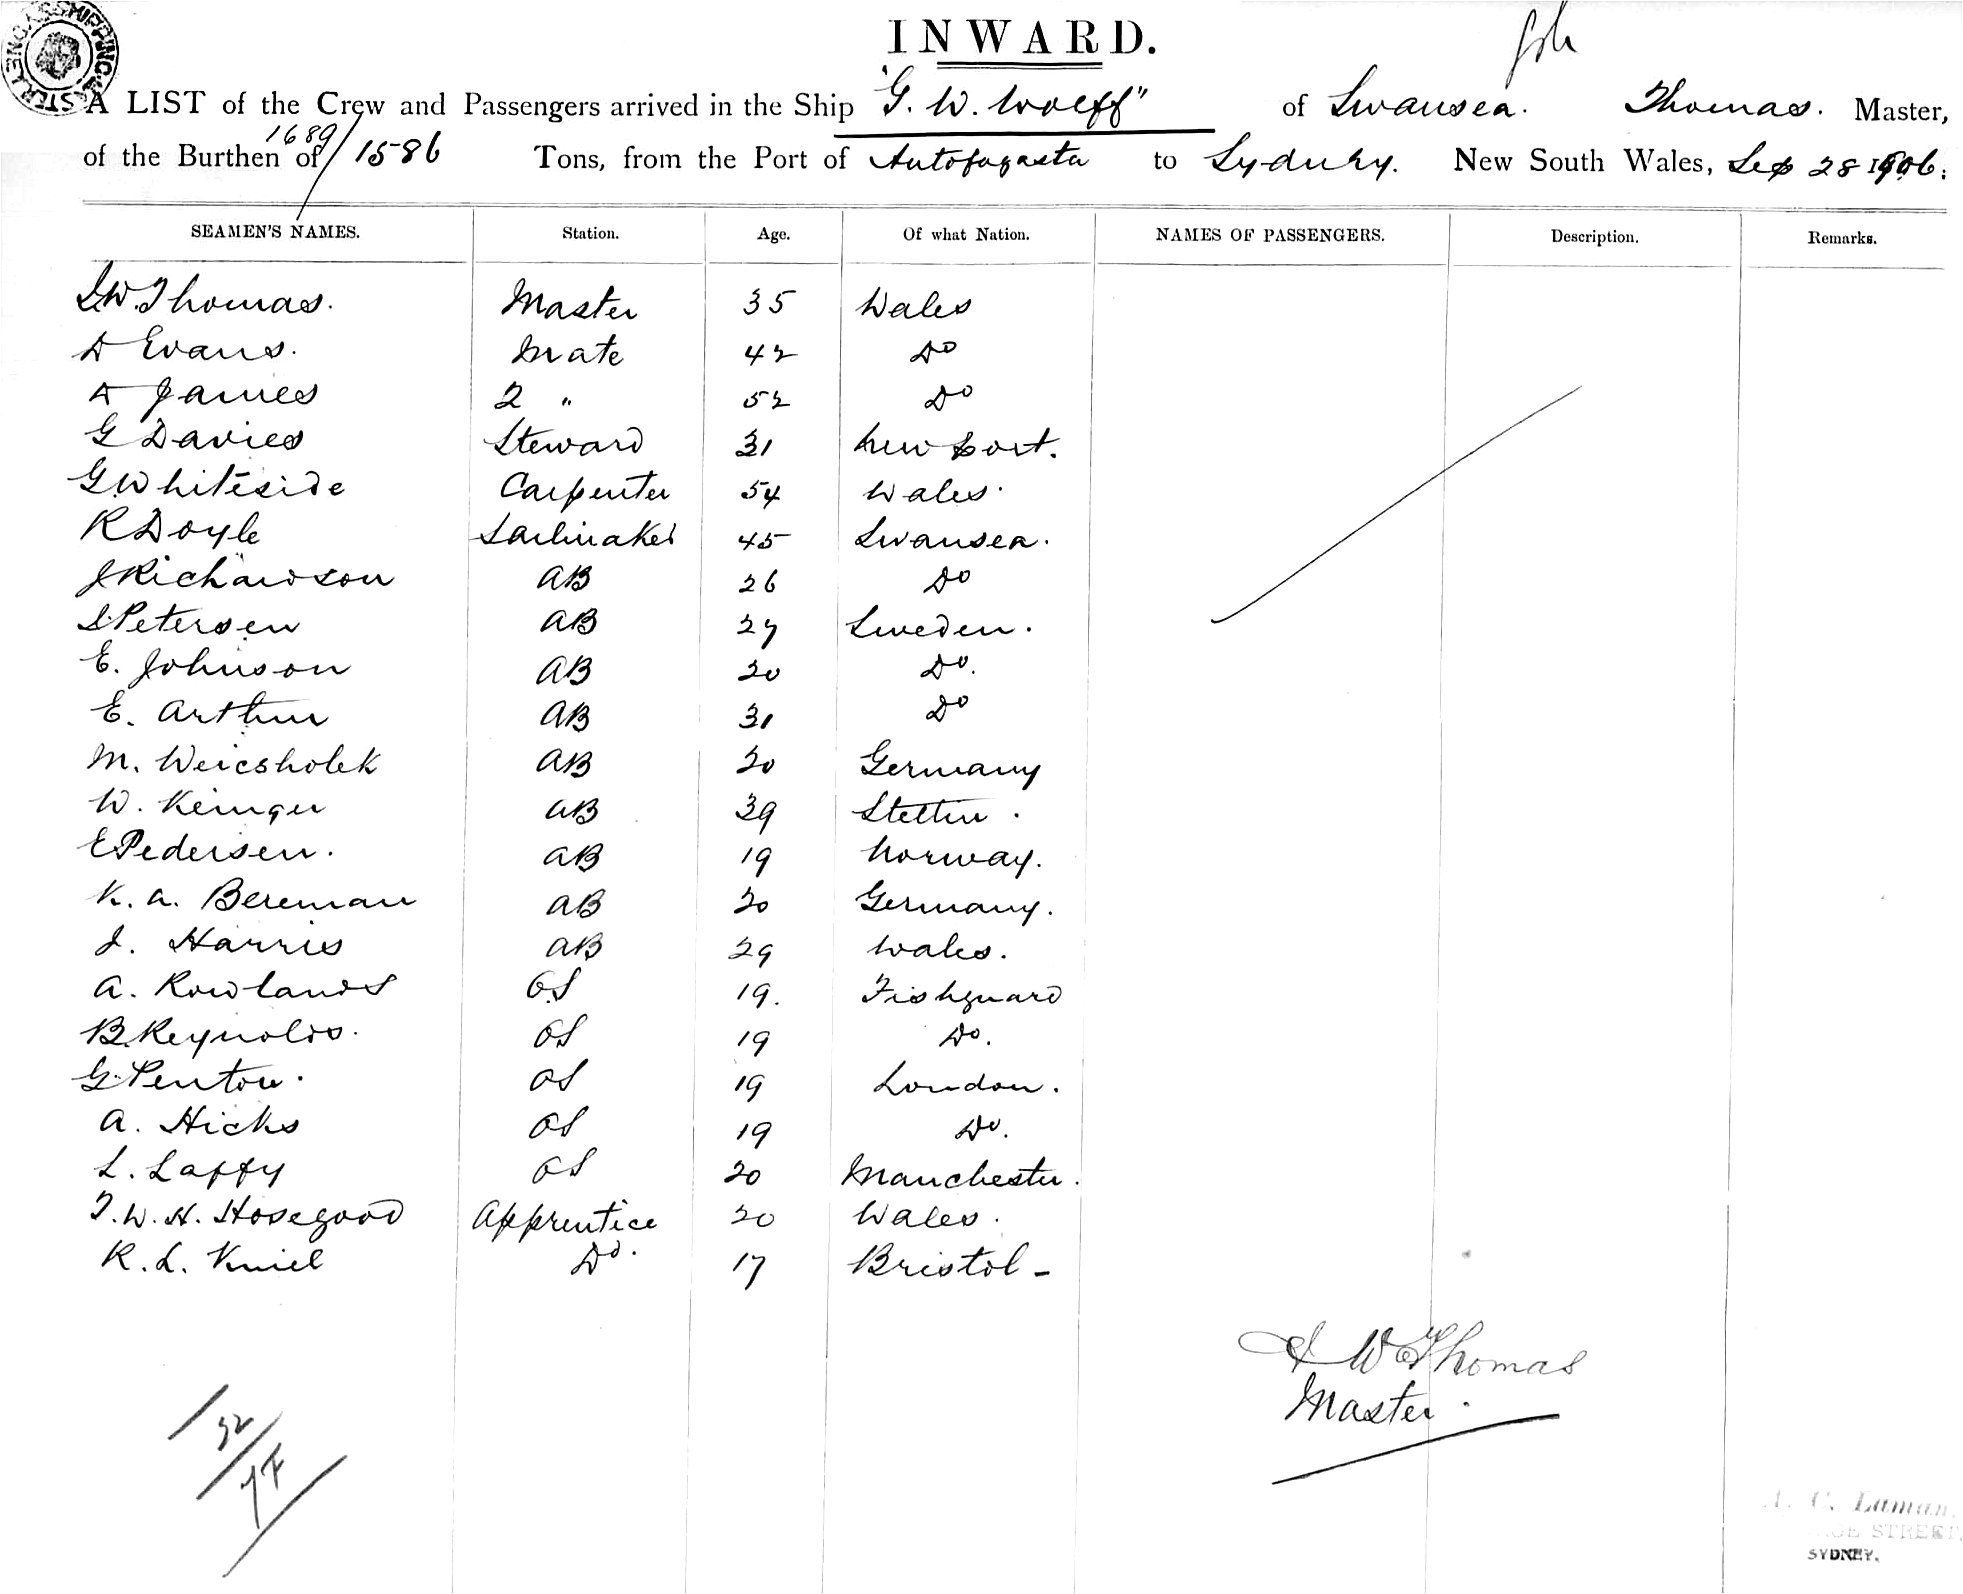 INWARD.
A LIST of the Crew and Passengers arrived in the Ship "G. W. Wolff" of Swansea. Thomas. Master,
of the Burthen of 1689/1586 Tons, from the Port of Antofagasta to Sydney. New South Wales, Sep 28 1906.
SEAMEN'S NAMES. Station. Age. Of what Nation. NAMES OF PASSENGERS. Description. Remarks.
W. Thomas. Master 35 Wales
D Evans. Mate 42 Do
D James 2 " 52 Do
G Davies Steward 31 Newport.
G Whiteside Carpenter 54 Wales.
R Doyle Sailmaker 45 Swansea.
J Richardson AB 26 Do
S Petersen AB 27 Sweden.
E. Johnson AB 20 Do.
E. Arthur AB 31 Do
M. Weicsholek AB 20 Germany
W. Keinger AB 39 Stettin.
E Pedersen. AB 19 Norway.
K. A. Bereman AB 20 Germany.
J. Harris AB 29 Wales.
A. Rowlands OS 19. Fishguard
B Reynolds. OS 19 Do.
G. Penton. OS 19 London.
A. Hicks OS 19 Do.
L. Laffy OS 20 Manchester.
T. W. H. Hosegood Apprentice 20 Wales.
R. L. Kniel Do. 17 Bristol -
W Thomas
Master.
A. C. Laman.
STREET,
SYDNEY.